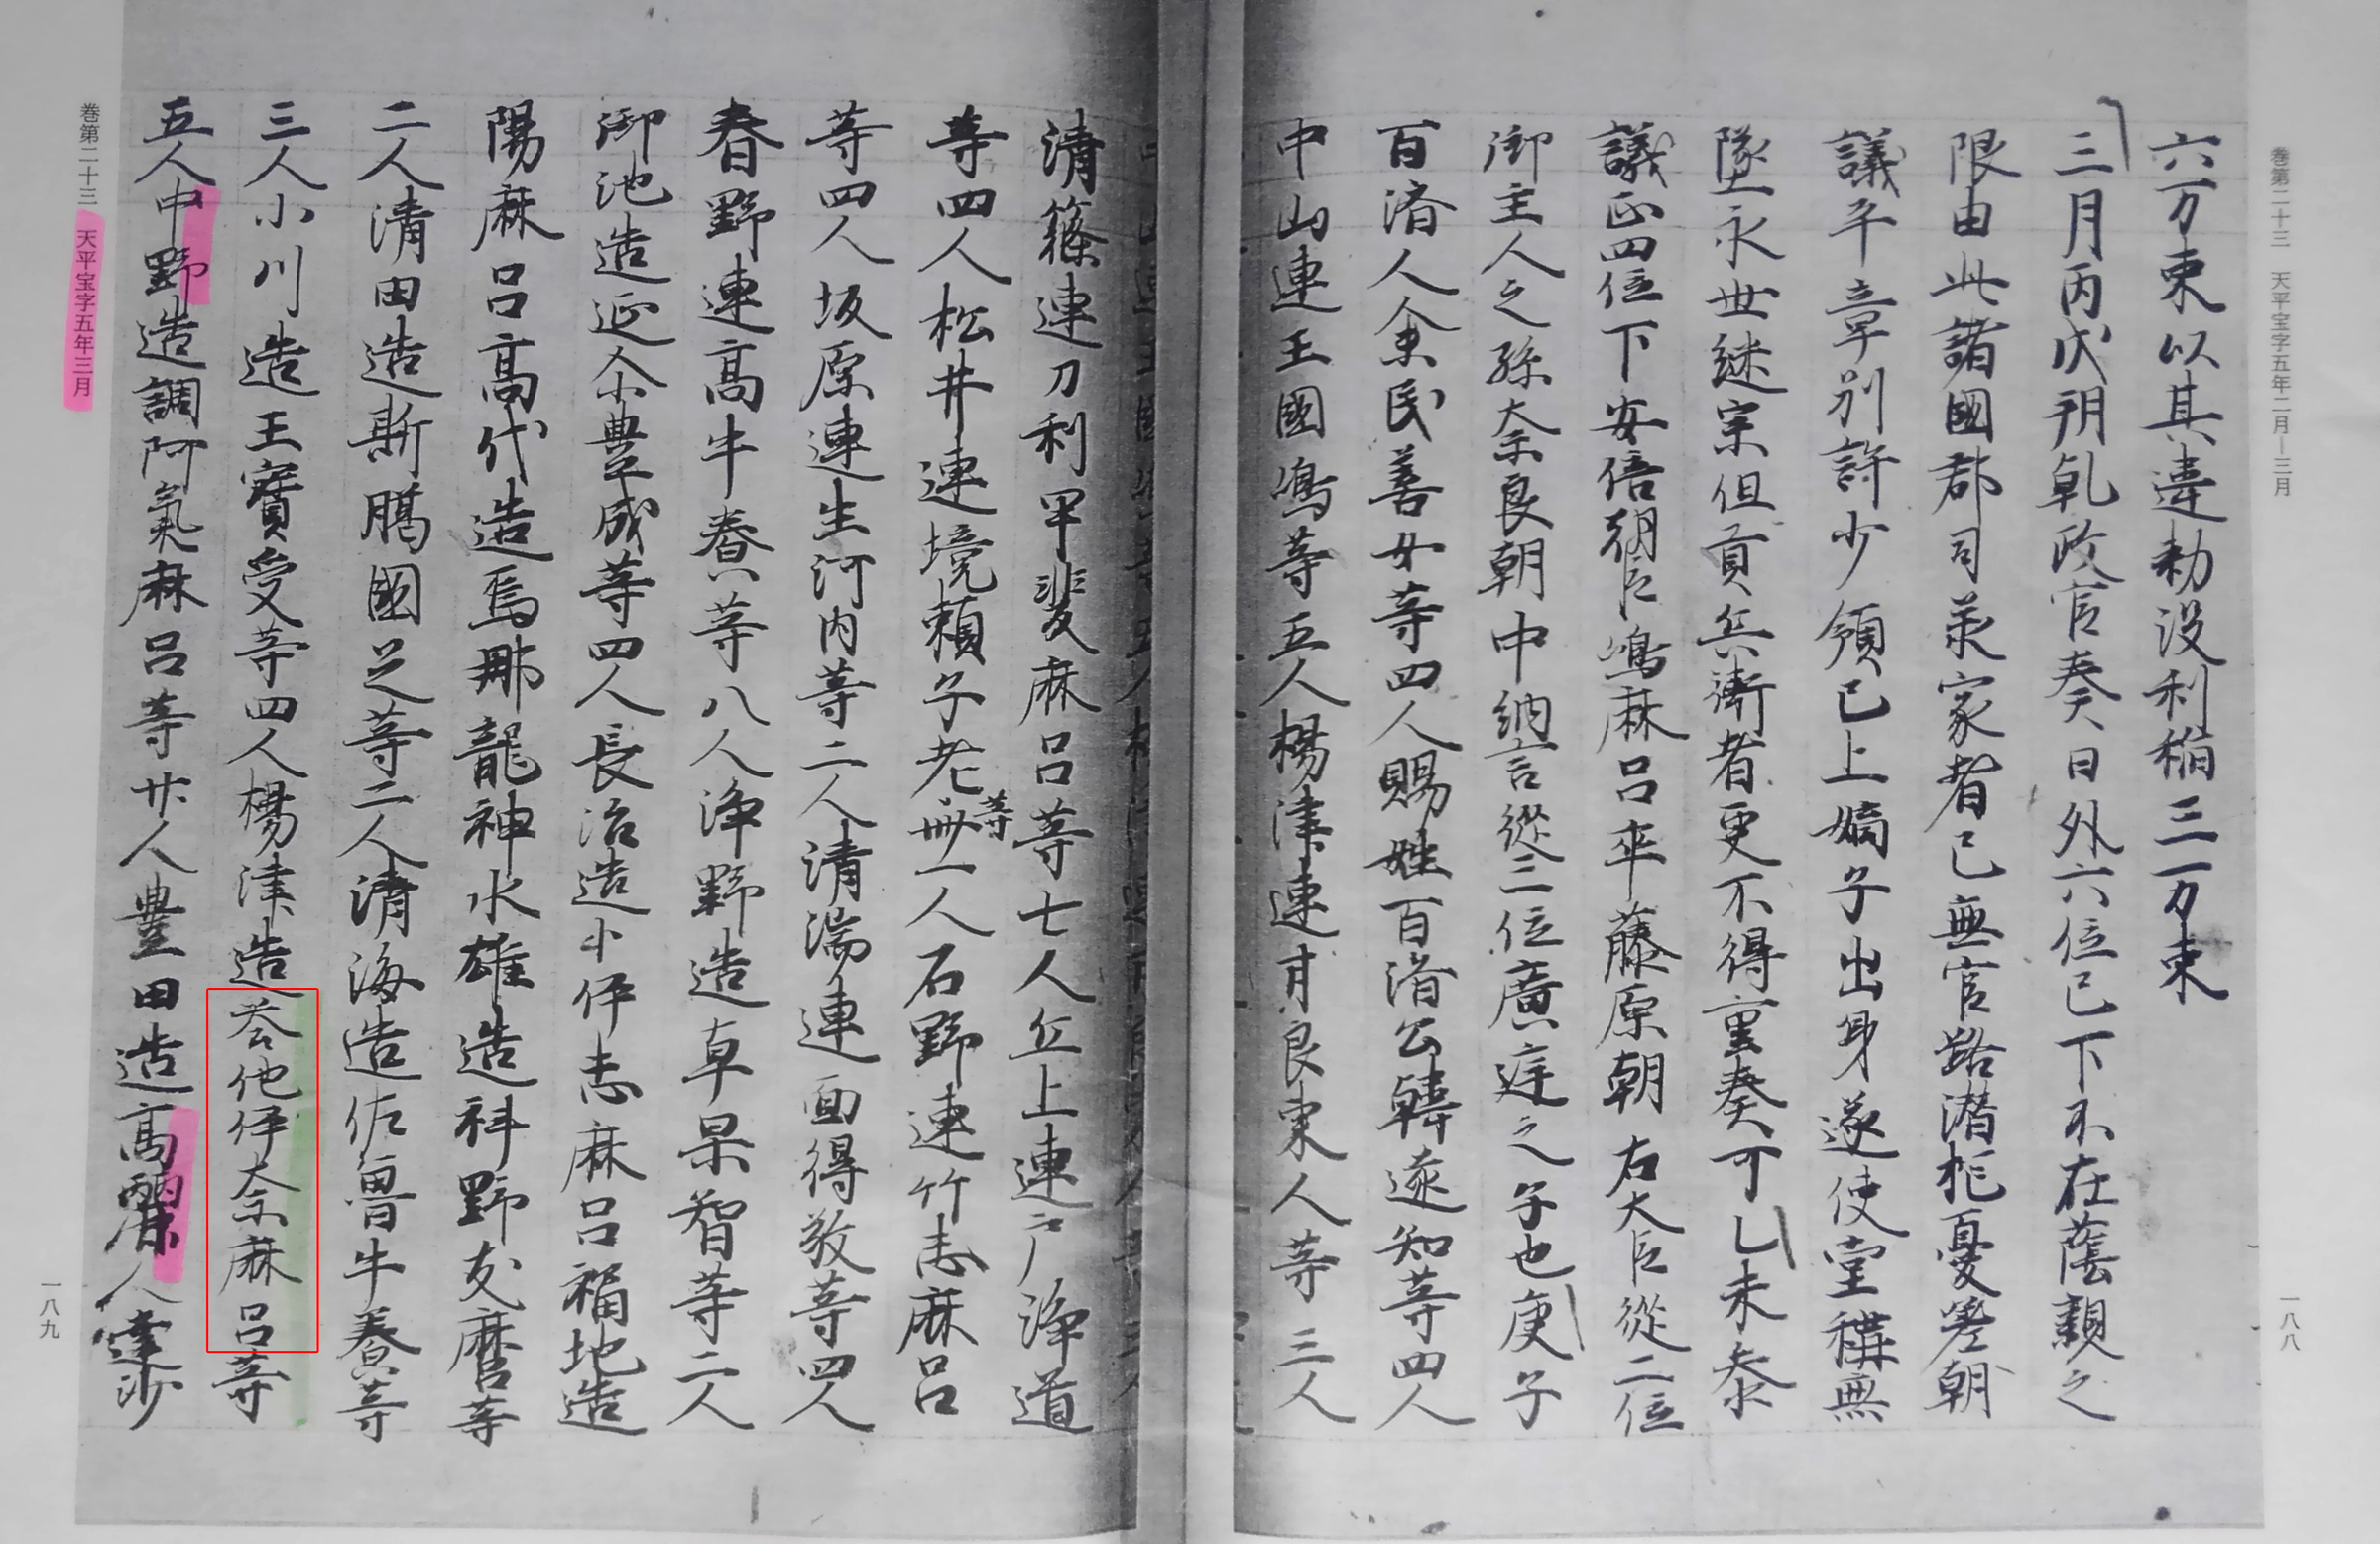 巻第二十三　天平宝字五年二月―三月
六万束以其違勅没利稲三一万束
三月丙戌朔乹政官奏日外六位已下不在蔭親之
限由此諸國郡司承家者已無官路潜抱憂嗟朝
議平章別許少領已上嫡子出身遂使堂構無
墜永世継宗但貢兵衛者更不得重奏可乙未参
議正四位下安倍朝臣嶋麻呂卒藤原朝右大臣從二位
御主人之孫奈良朝中納言從三位廣庭之子也庚子
百濟人余民善女等四人賜姓百濟公韓遠知等四人
中山連王國嶋等五人楊津連甘良東人等三人
一八八
清篠連刀利甲斐麻呂等七人丘上連戸浄道
等四人松井連境頼子老等卌一人石野連竹志麻呂
等四人坂原連生河内等二人清湍連面得敬等四人
春野連高牛養等八人浄野造卓杲智等二人
御池造延尓豊成等四人長沼造小伊志麻呂福地造
陽麻呂高代造烏那龍神水雄造科野友麿等
二人清田造斯﨟國足等二人清海造佐魯牛養等
三人小川造王寶受等四人楊津造荅他伊奈麻呂等
五人中野造調阿氣麻呂等廿人豊田造高麗人達沙
巻第二十三　天平宝字五年三月
一八九